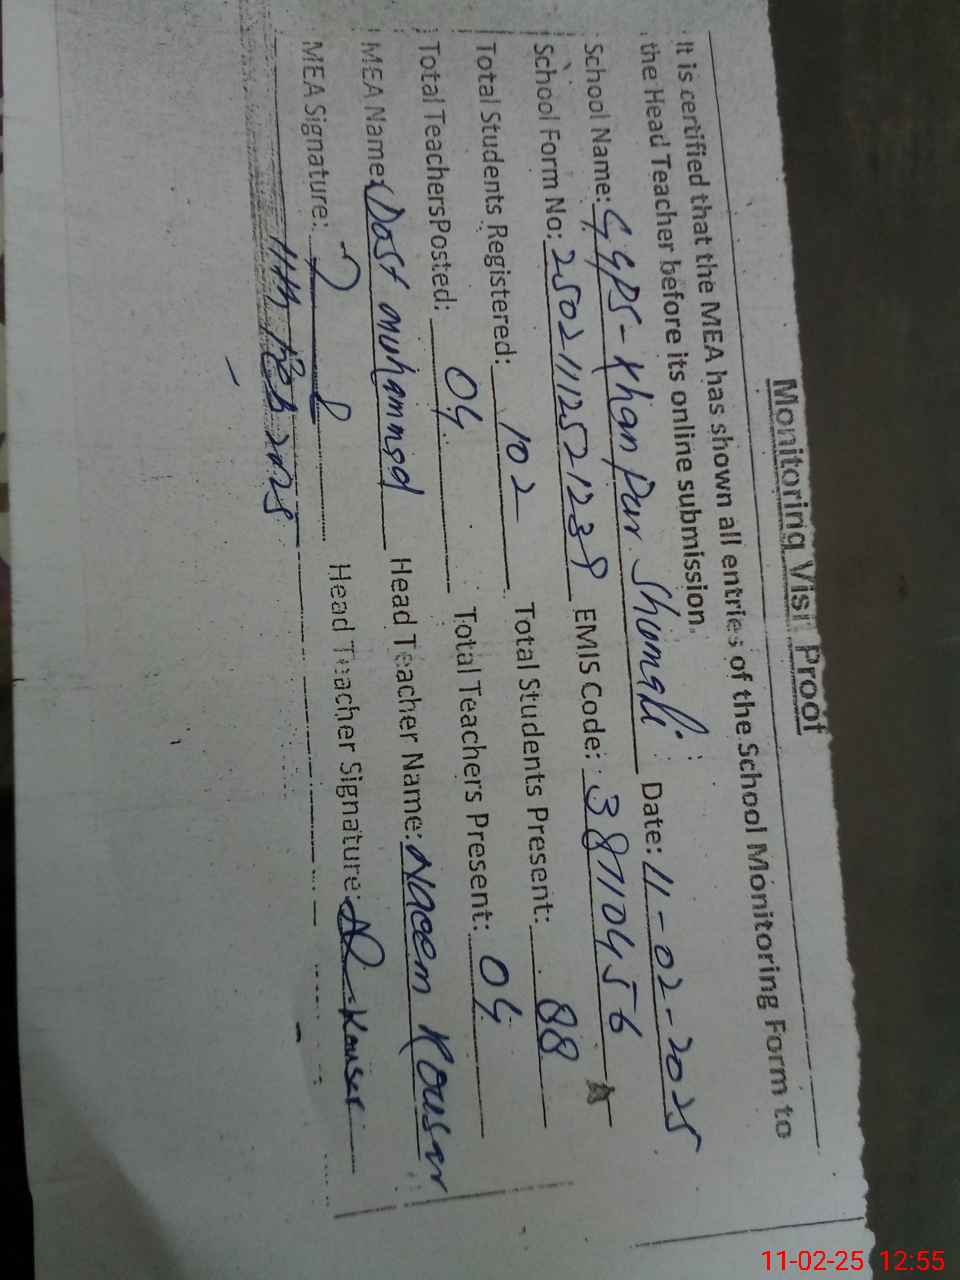 Monitoring Visit Proof
It is certified that the MEA has shown all entries of the School Monitoring Form to
the Head Teacher before its online submission.
School Name: GGPS-Khan Pur Shumali Date: 11-02-2025
School Form No: 25021112521239 EMIS Code: 38710456
Total Students Registered: 102 Total Students Present: 88
Total TeachersPosted: 04 Total Teachers Present: 04
MEA Name: Dost muhammad Head Teacher Name: Naeem Kousar
MEA Signature: Head Teacher Signature: Kousar
11th Feb 2025
11-02-25 12:55